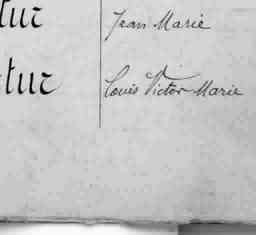 tur Jean Marie
tur Louis Victor Marie